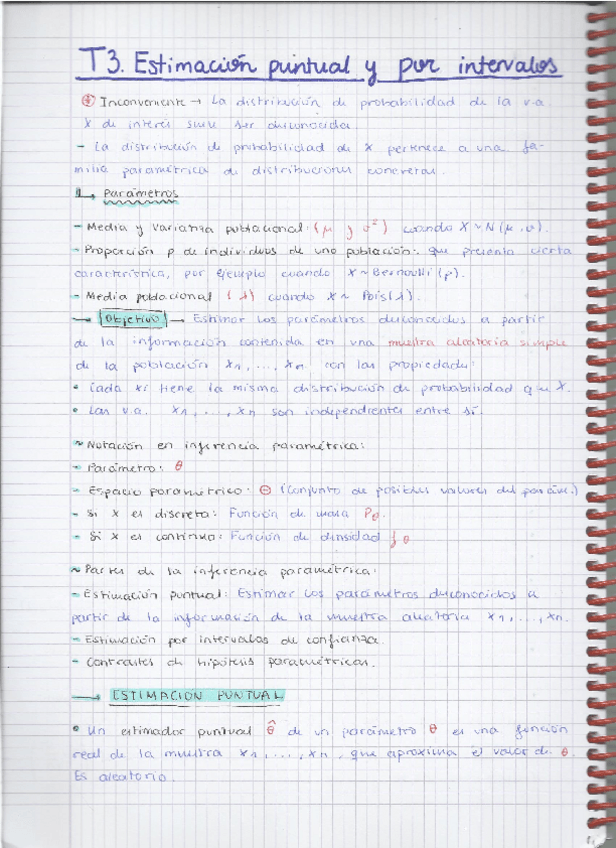 T3. Estimación puntual y por intervalos
Inconveniente → La distribución de probabilidad de la v.a.
X de interés suele ser desconocida.
- La distribución de probabilidad de X pertenece a una fa-
milia paramétrica de distribuciones concretas.
Parámetros
- Media y Varianza poblacional: (μ y σ²) cuando X ~ N(μ, σ).
- Proporción p de individuos de una población: que presenta cierta
característica, por ejemplo cuando X ~ Bernoulli (p).
- Media poblacional (λ) cuando X ~ Pois(λ).
→ Objetivo → Estimar los parámetros desconocidos a partir
de la información contenida en una muestra aleatoria simple
de la población X1, ..., Xn con las propiedades:
• Cada Xi tiene la misma distribución de probabilidad que X.
• Las v.a. X1, ..., Xn son independientes entre sí.
~ Notación en inferencia paramétrica:
- Parámetro: θ
- Espacio parametrico: Θ (Conjunto de posibles valores del parám.)
- Si X es discreta: Función de masa Pθ
- Si X es continua: Función de densidad fθ
~ Partes de la inferencia paramétrica:
- Estimación puntual: Estimar los parámetros desconocidos a
partir de la información de la muestra aleatoria X1, ..., Xn.
- Estimación por intervalos de confianza.
- Contrastes de hipótesis paramétricas.
→ ESTIMACION PUNTUAL
• Un estimador puntual θ̂ de un parámetro θ es una función
real de la muestra X1, ..., Xn, que aproxima el valor de θ.
Es aleatorio.